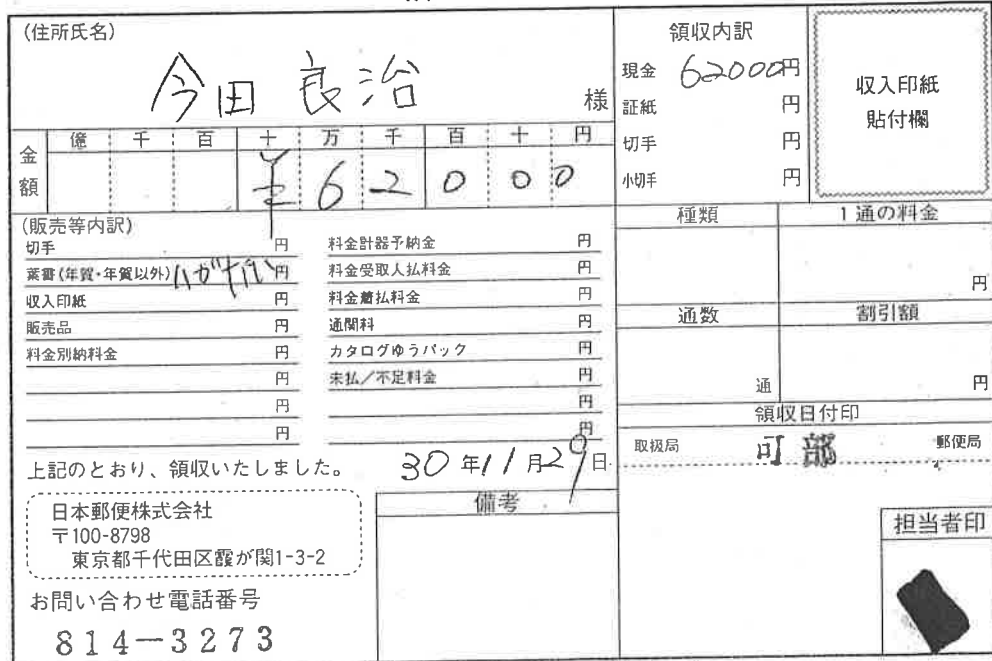 (住所氏名)
今田 良治 様
金額
億 千 百 十 万 千 百 十 円
¥ 6 2 0 0 0
領収内訳
現金 62000円
証紙 円
切手 円
小切手 円
収入印紙
貼付欄
(販売等内訳)
切手 円
葉書(年賀・年賀以外) ハガキ代 円
収入印紙 円
販売品 円
料金別納料金 円
円
円
円
料金計器予納金 円
料金受取人払料金 円
料金着払料金 円
通関料 円
カタログゆうパック 円
未払/不足料金 円
円
円
種類 1通の料金
円
通数 割引額
通 円
領収日付印
取扱局 可部 郵便局
上記のとおり、領収いたしました。
30年11月29日
日本郵便株式会社
〒100-8798
東京都千代田区霞が関1-3-2
お問い合わせ電話番号
814-3273
備考
担当者印